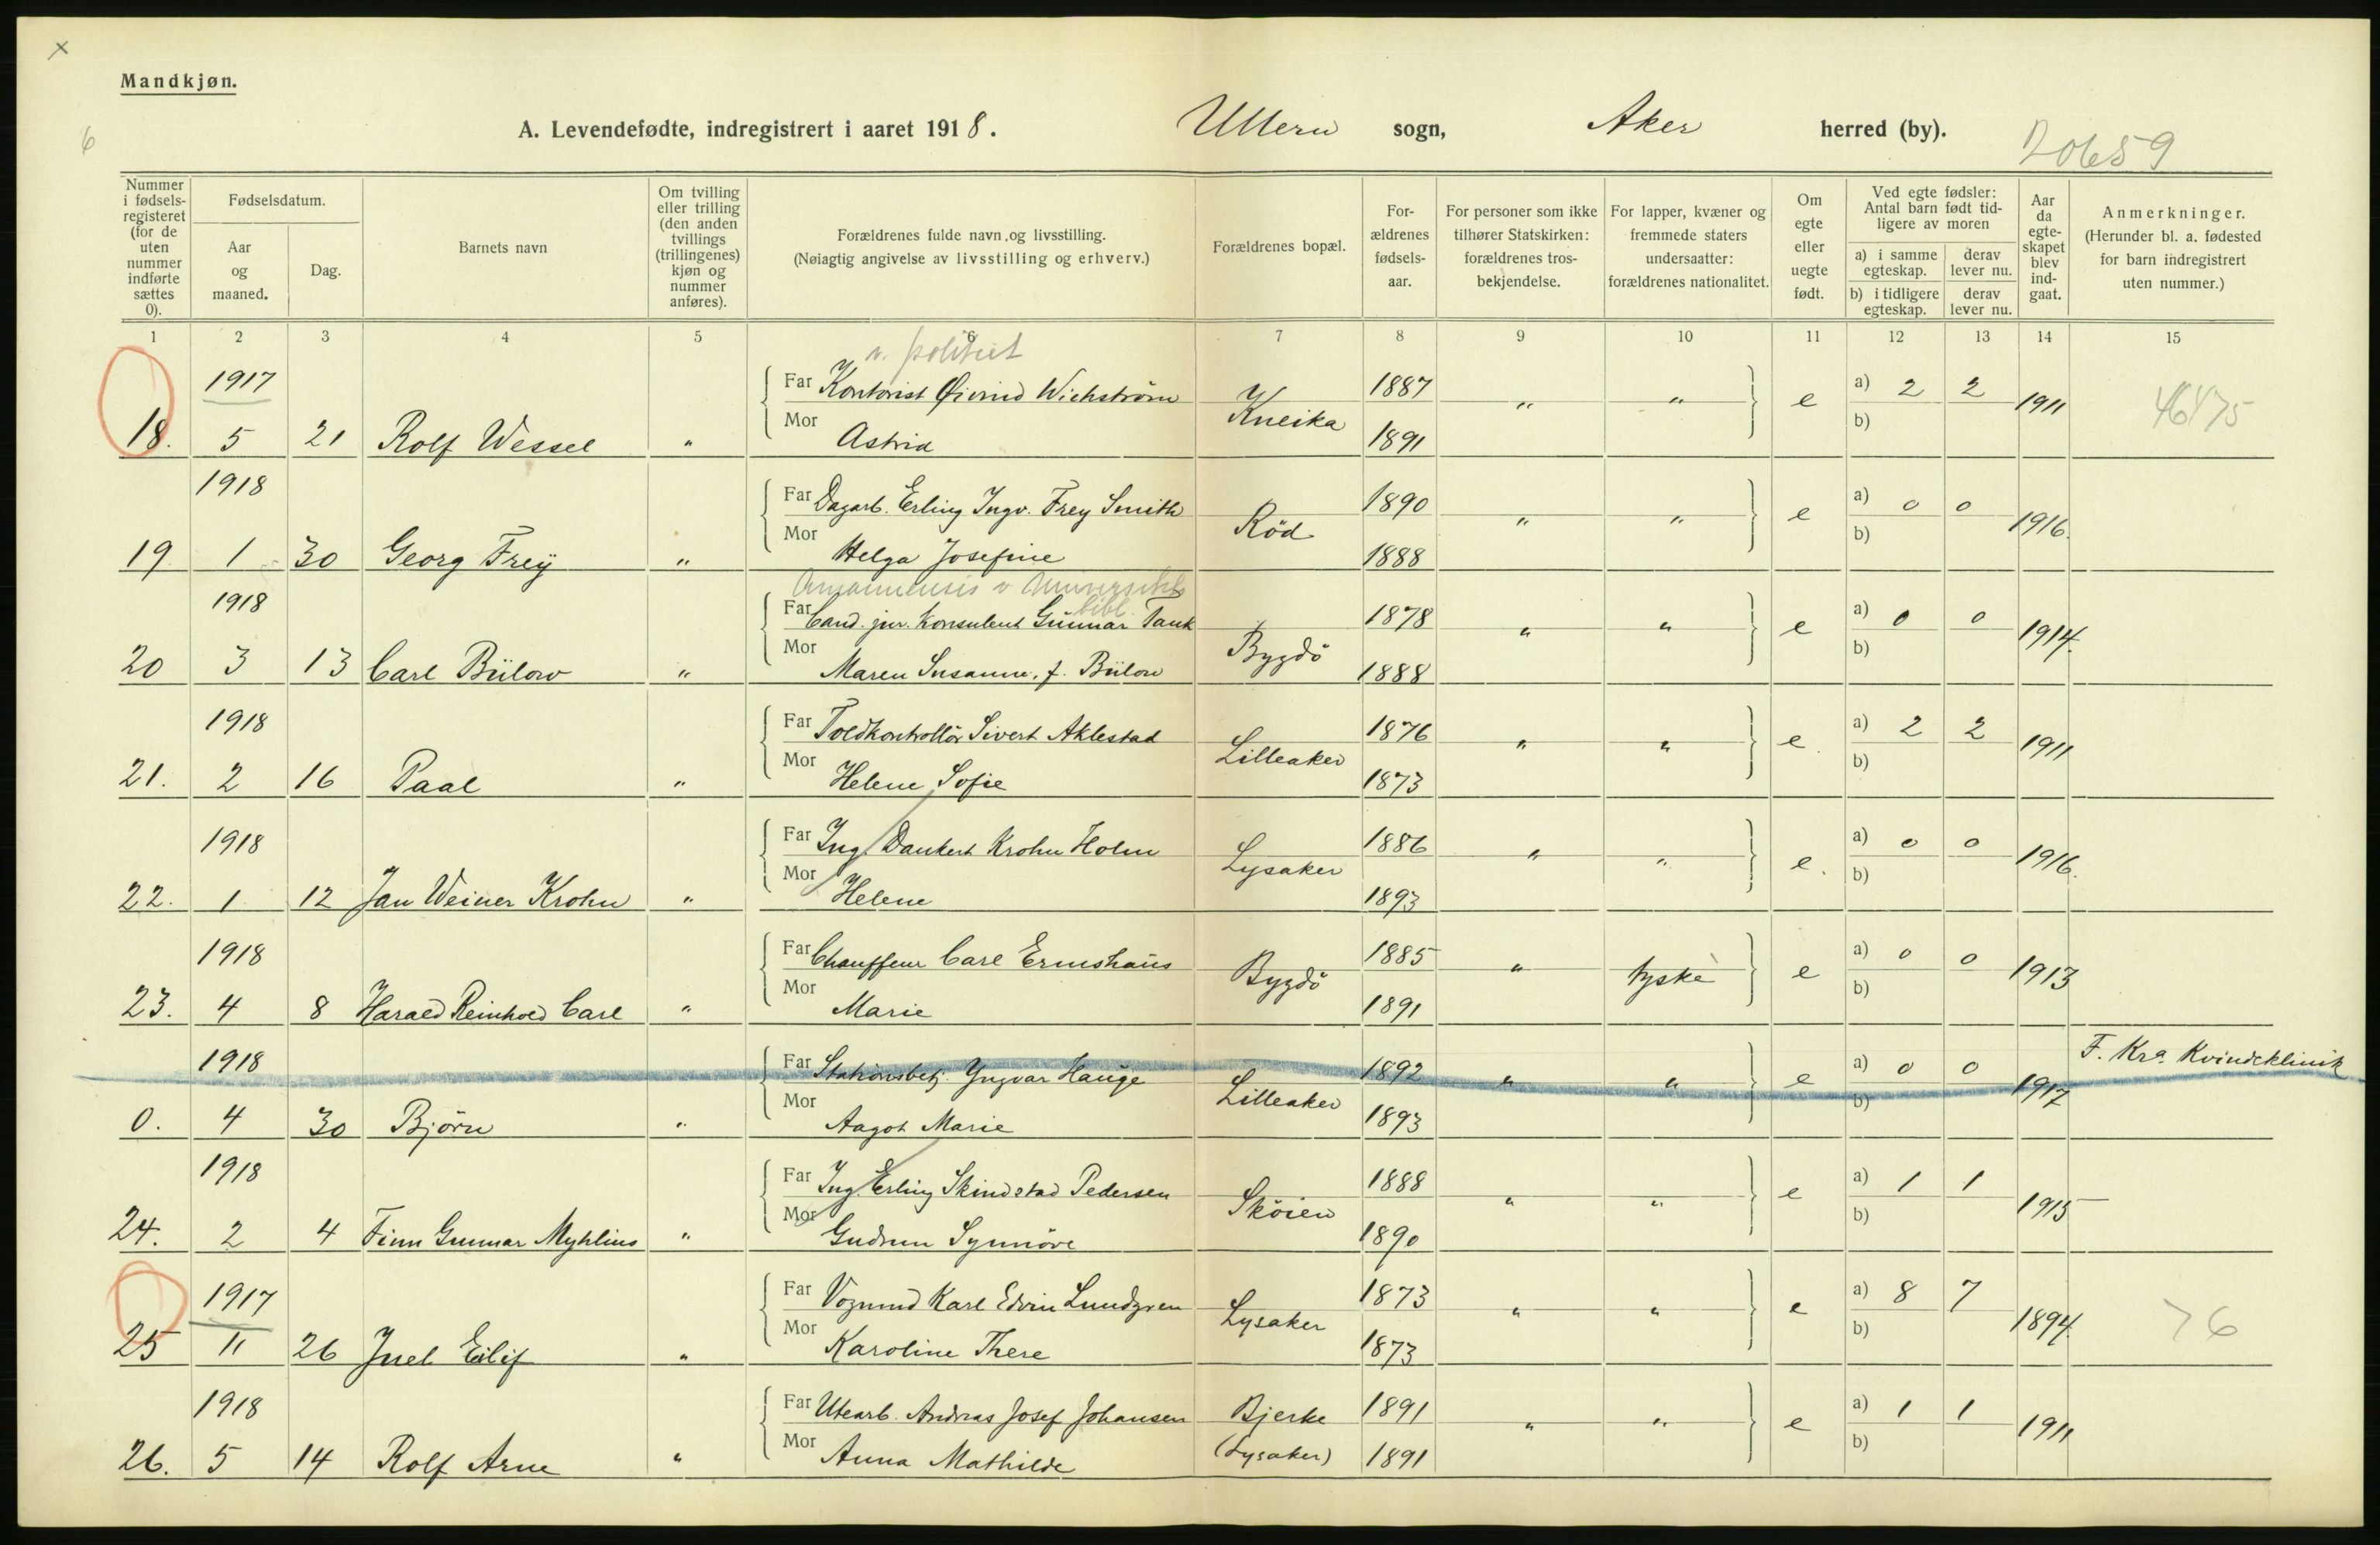 Mandkjøn.
A. Levendefødte, indregistrert i aaret 1918. Ullern sogn, Aker herred (by).
20659
6
Nummer i fødselsregisteret (for de uten nummer indførte sættes 0).
Fødselsdatum.
Aar og maaned.
Dag.
Barnets navn
Om tvilling eller trilling (den anden tvillings (trillingenes) kjøn og nummer anføres).
Forældrenes fulde navn og livsstilling.
(Nøiagtig angivelse av livsstilling og erhverv.)
Forældrenes bopæl.
Forældrenes fødselsaar.
For personer som ikke tilhører Statskirken: forældrenes trosbekjendelse.
For lapper, kvæner og fremmede staters undersaatter: forældrenes nationalitet.
Om egte eller uegte født.
Ved egte fødsler: Antal barn født tidligere av moren
a) i samme egteskap. derav lever nu.
b) i tidligere egteskap. derav lever nu.
Aar da egteskapet blev indgaat.
Anmerkninger.
(Herunder bl. a. fødested for barn indregistrert uten nummer.)
1 2 3 4 5 6 7 8 9 10 11 12 13 14 15
v. politiet
1917 Far Kontorist Øivind Wichstrøm Kneika 1887 „ „ e a) 2 2 1911
18. 5 21 Rolf Wessel „ Mor Astrid 1891 b)
1918 Far Dagarb. Erling Ingv. Frey Smith Röd 1890 „ „ e a) 0 0 1916.
19 1 30 Georg Frey „ Mor Helga Josefine 1888 b)
Amanuensis v Universitets bibl.
1918 Far Cand. jur. Konsulent Gunnar Tank Bygdö 1878 „ „ e a) 0 0 1914.
20 3 13 Carl Bülow „ Mor Maren Susanne, f. Bülow 1888 b)
1918 Far Toldkontrollör Sivert Aklestad Lilleaker 1876 „ „ e. a) 2 2 1911
21. 2 16 Paal „ Mor Helene Sofie 1873 b)
1918 Far Ing. Dankert Krohn Holm Lysaker 1886 „ „ e. a) 0 0 1916.
22. 1 12 Jan Weiner Krohn „ Mor Helene 1893 b)
1918 Far Chauffeur Carl Ermshaus Bygdö 1885 „ tyske e a) 0 0 1913
23. 4 8 Harald Reinhold Carl „ Mor Marie 1891 b)
1918 Far Stationsbetj. Yngvar Hauge Lilleaker 1892 „ „ e a) 0 0 1917 F. Kra. Kvindeklinik
0. 4 30 Björn „ Mor Aagot Marie 1893 b)
1918 Far Ing. Erling Skindstad Pedersen Sköien 1888 „ „ e a) 1 1 1915
24. 2 4 Finn Gunnar Myhlius „ Mor Gudrun Synnöve 1890 b)
1917 Far Vognmd Karl Edvin Lundgren Lysaker 1873 „ „ e a) 8 7 1894. 76
25 11 26 Juel Eilif „ Mor Karoline There 1873 b)
1918 Far Utearb. Andreas Josef Johansen Bjerke 1891 „ „ e a) 1 1 1911
26. 5 14 Rolf Arne „ Mor Anna Mathilde (Lysaker) 1891 b)